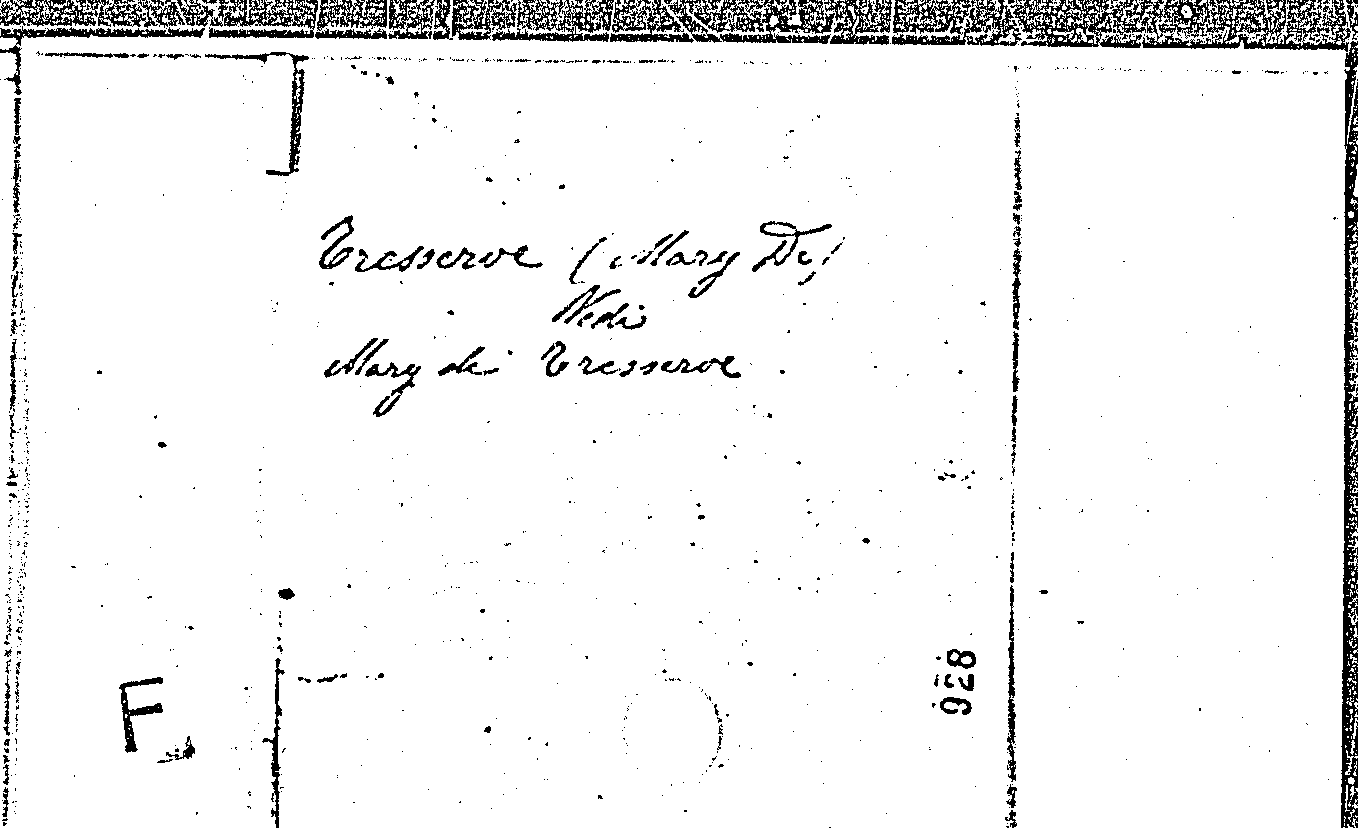 Tresserve (Mary De)
Vedi
Mary de Tresserve
928
F